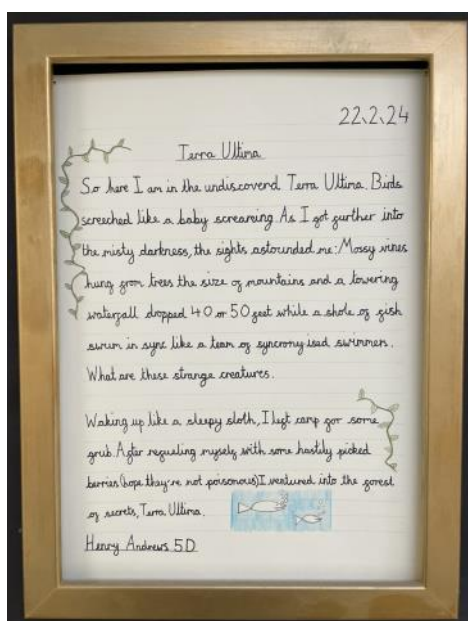 22.2.24
Terra Ultima
So here I am in the undiscoverd Terra Ultima. Birds
screeched like a baby screaming. As I got further into
the misty darkness, the sights astounded me: Mossy vines
hung from trees the size of mountains and a towering
waterfall dropped 40 or 50 feet while a shole of fish
swum in sync like a team of syncronyised swimmers.
What are these strange creatures.
Waking up like a sleepy sloth, I left camp for some
grub. After refueling myself with some hastily picked
berries (hope they're not poisonous) I ventured into the forest
of secrets, Terra Ultima.
Henry Andrews 5D